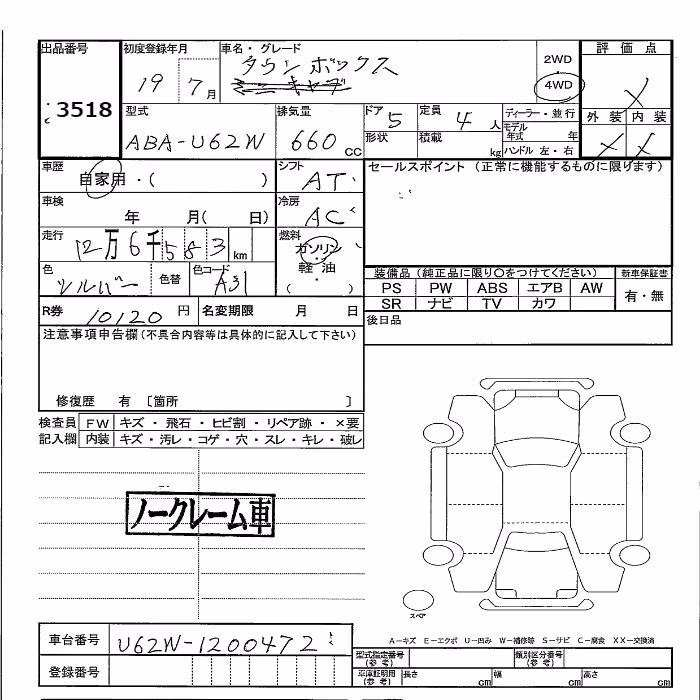 出品番号
3518
初度登録年月
19 7月
車名・グレード
タウンボックス
2WD
4WD
評価点
×
外装 内装
× ×
型式
ABA-U62W
排気量
660 cc
ドア 5
形状
定員 4 人
積載 kg
ディーラー・並行
モデル年式 年
ハンドル 左・右
車歴
自家用・( )
シフト
AT
セールスポイント (正常に機能するものに限ります)
車検
年 月( 日)
冷房
AC
走行
12万6千583km
燃料
ガソリン・軽油・( )
色
シルバー
色替
色コード
A31
装備品(純正品に限り○をつけてください)
PS PW ABS エアB AW
SR ナビ TV カワ
新車保証書
有・無
R券 10120 円
名変期限 月 日
後日品
注意事項申告欄(不具合内容等は具体的に記入して下さい)
修復歴 有 〔箇所 〕
検査員記入欄
FW キズ・飛石・ヒビ割・リペア跡・×要
内装 キズ・汚レ・コゲ・穴・スレ・キレ・破レ
ノークレーム車
スペア
A-キズ E-エクボ U-凹み W-補修等 S-サビ C-腐食 XX-交換済
車台番号 U62W-1200472
登録番号
型式指定番号(参考)
類別区分番号(参考)
車庫証明用(参考) 長さ cm 幅 cm 高さ cm